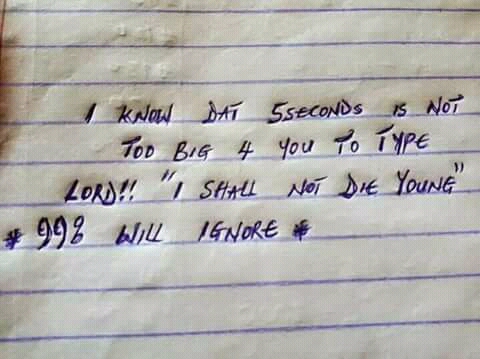 I KNOW DAT 5SECONDS IS NOT
TOO BIG 4 YOU TO TYPE
LORD!! "I SHALL NOT DIE YOUNG"
* 998 WILL IGNORE *